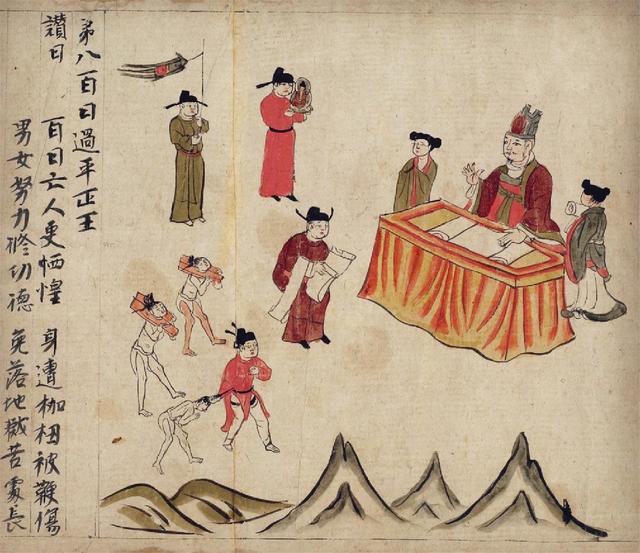 弟八百日過平正王
讃曰 百日亡人更恓惶 身遭枷杻被鞭傷
男女努力修功德 免落地獄苦處長